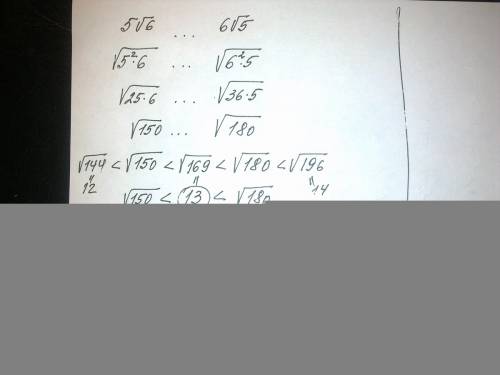 5√6 ... 6√5
√5²·6 ... √6²·5
√25·6 ... √36·5
√150 ... √180
√144 < √150 < √169 < √180 < √196
12 = 14
√150 < 13 < √180